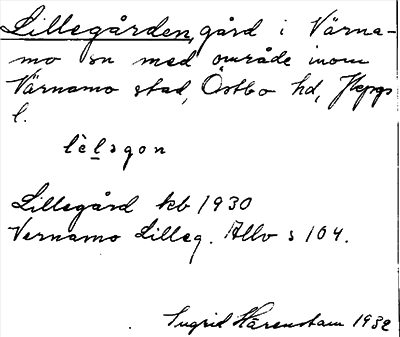 Lillegården, gård i Värna-
mo sn med område inom
Värnamo stad, Östbo hd, Jkpgs
l.
lèlsgon
Lillegård kb 1930
Vernamo Lilleg. Allv s 104.
Ingrid Härenstam 1932